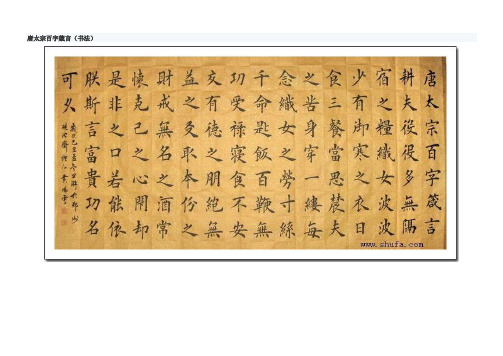 唐太宗百字箴言（书法）
唐太宗百字箴言
耕夫後役多無隔
宿之糧織女波波
少有御寒之衣日
食三餐當思農夫
之苦身穿一縷每
念織女之勞寸絲
千命匙飯百鞭無
功受祿寢食不安
交有德之朋絕無
益之友取本份之
財戒無名之酒常
懷克己之心閉却
是非之口若能依
朕斯言富貴功名
可久
www.shufa.com